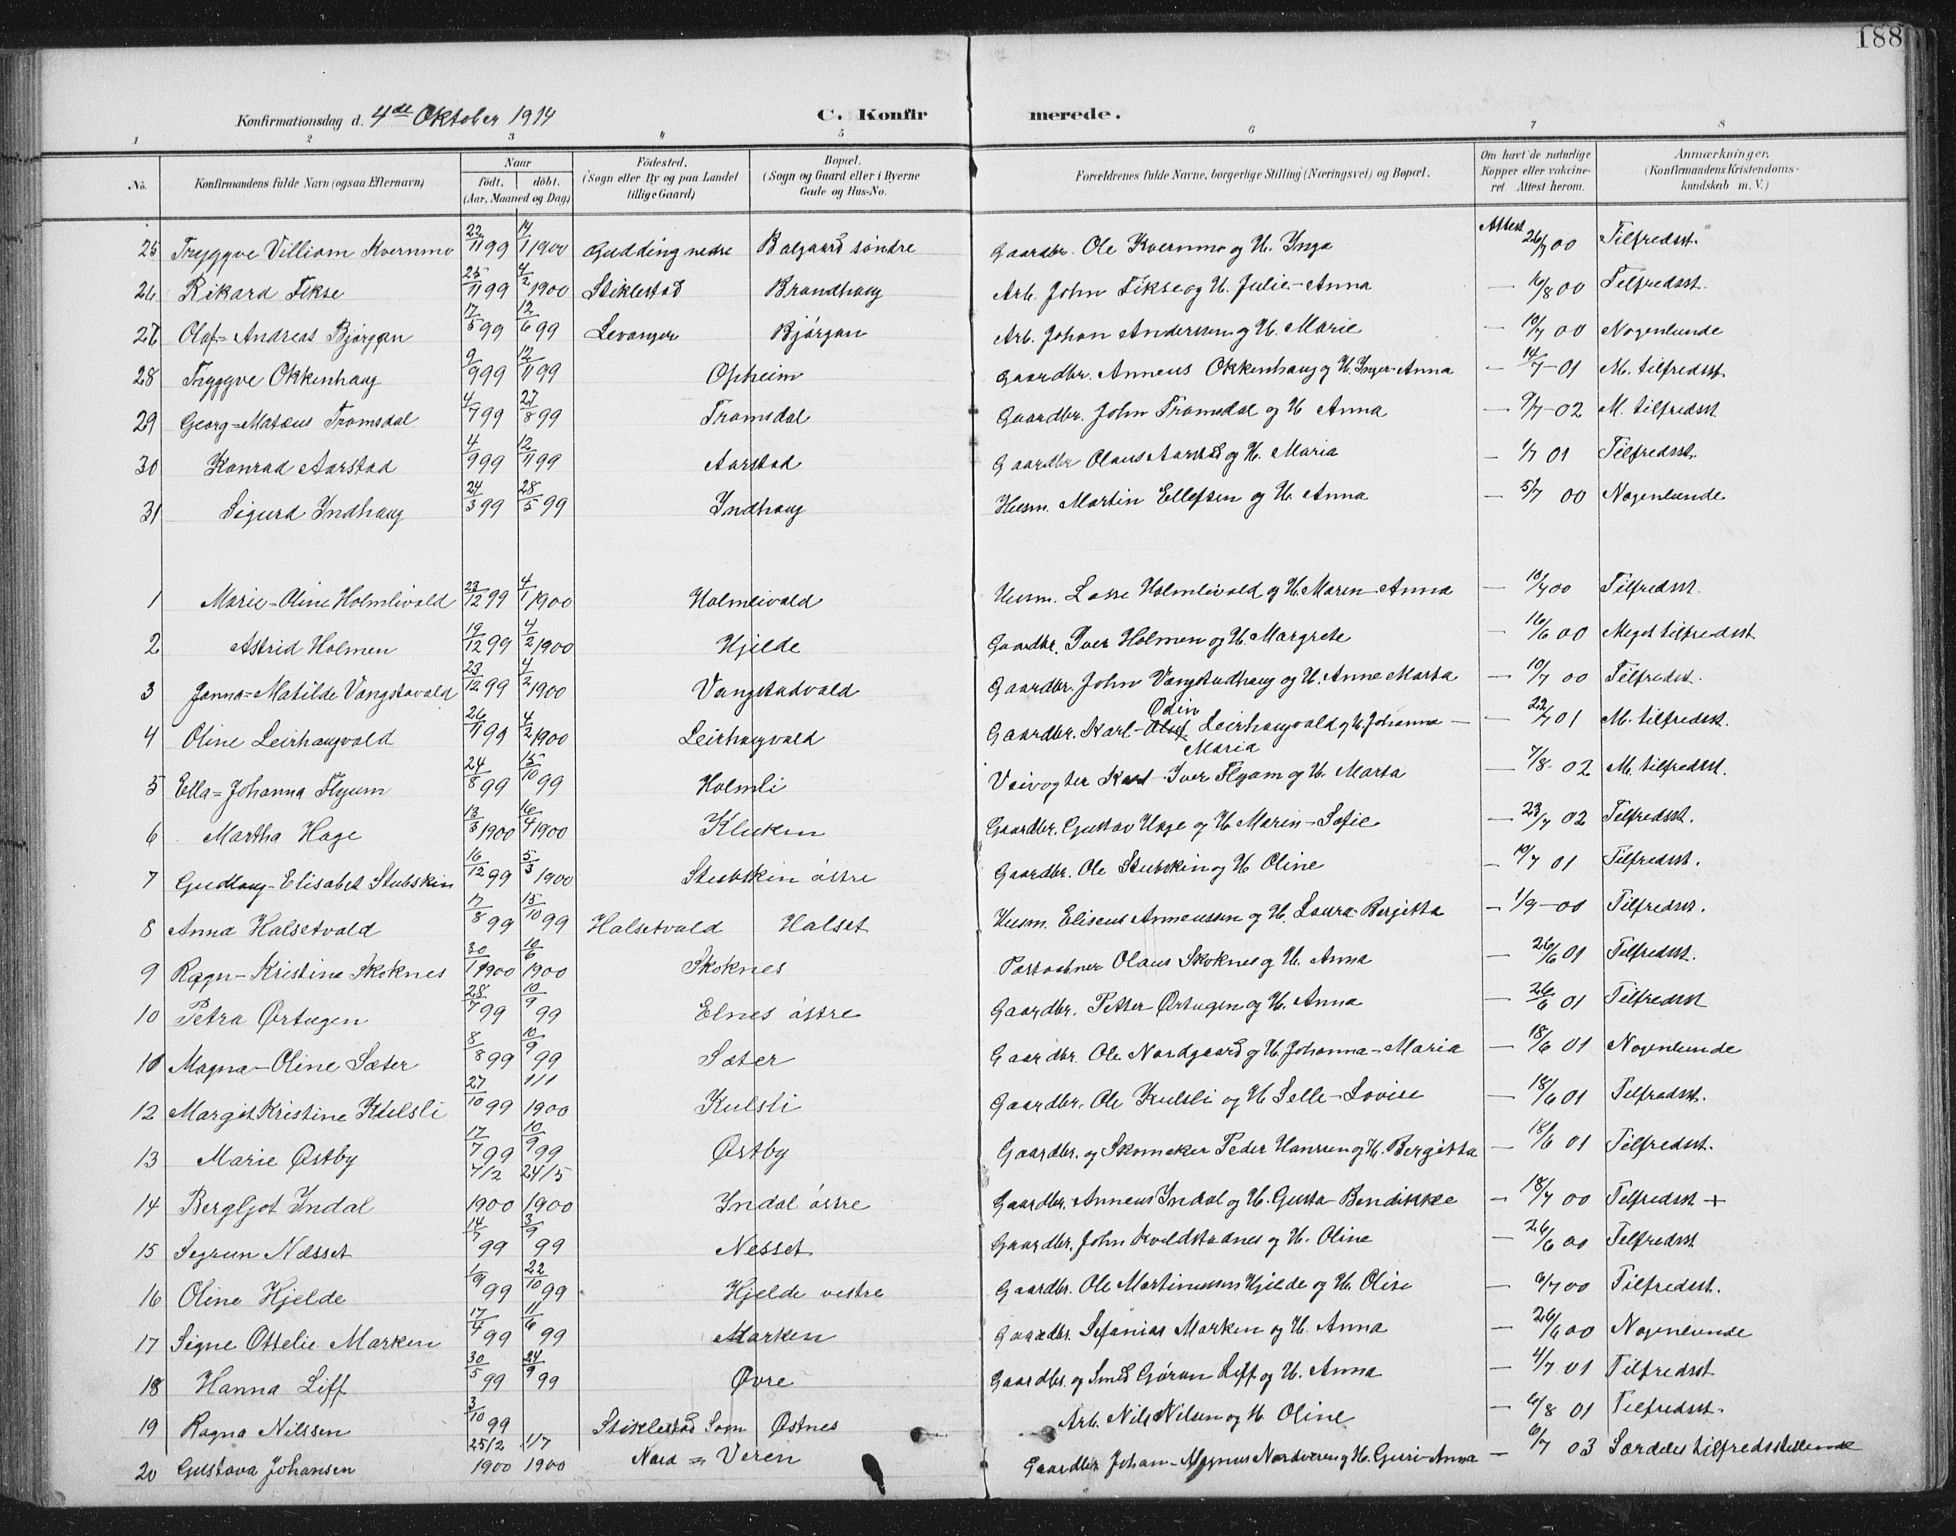 188
Konfirmationsdag d. 4de Oktober 1914 C. Konfirmerede.
1 2 3 4 5 6 7 8
No. Konfirmandens fulde Navn (ogsaa Efternavn) Naar födt. döbt. (Aar, Maaned og Dag) Födested. (Sogn eller By og paa Landet tillige Gaard) Bopæl. (Sogn og Gaard eller i Byerne Gade og Hus-No. Forældrenes fulde Navne, borgerlige Stilling (Næringsvei) og Bopæl. Om havt de naturlige Kopper eller vakcineret Attest herom. Anmærkninger. (Konfirmandens Kristendomskundskab m. V.)
25 Tryggve Villiam Kvernmo 22/11 99 14/1 1900 Gudding nedre Balgaard söndre Gaardbr. Ole Kvernmo og H. Inga Attest 26/7 00 Tilfredsst.
26 Rikard Fikse 25/11 99 4/2 1900 Stiklestad Brandhaug Arb. John Fikse og H. Julie-Anna — 6/8 00 Tilfredsst.
27 Olaf-Andreas Bjørgan 17/5 99 12/6 99 Levanger Bjørgan Arb. Johan Andersen og H. Marie — 10/7 00 Nogenlunde
28 Tryggve Okkenhaug 9/9 99 12/11 99 Opheim Gaardbr. Anneus Okkenhaug og H. Inger-Anna — 14/7-01 M. tilfredsst.
29 Georg-Mateus Tromsdal 4/7 99 27/8 99 Tromsdal Gaardbr. John Tromsdal og H Anna — 9/7-02 M. tilfredsst
30 Konrad Aarstad 4/9 99 12/11 99 Aarstad Gaardbr Olaus Aarstad og H. Maria — 1/7 01 Tilfredsst.
31 Sigurd Indhaug 24/3 99 28/5 99 Indhaug Husm. Martin Ellefsen og H. Anna — 5/7 00 Nogenlunde
1 Marie-Oline Holmlivald 23/12 99 4/1 1900 Holmlivald Husm. Lasse Holmlivald og H. Maren-Anna — 10/7 00 Tilfredsst.
2 Astrid Holmen 19/12 99 4/2 1900 Hjelde Gaardbr. Iver Holmen og H. Margrete — 16/6 00 Meget tilfredsst
3 Janna-Matilde Vangstavald 23/12 99 4/2 1900 Vangstadvald Gaardbr. John Vangstadhaug og H. Anne Marta — 10/7 00 Tilfredsst.
4 Oline Leirhaugvald 26/11 99 4/2 1900 Leirhaugvald Gaardbr. Karl-Olaf Odin Leirhaugvald og H. Johanna-Maria — 22/7 01 M. tilfredsst.
5 Ella-Johanna Flyum 24/8 99 15/10 99 Holmli Veivogter Karl-Iver Flyam og H. Marta — 7/8-02 M. tilfredsst.
6 Martha Hage 13/3 1900 16/4 1900 Kluken Gaardbr. Gustav Hage og H. Maren-Sofie — 23/7 02 Tilfredsst.
7 Gudlaug-Elisabet Stubskin 16/12 99 5/3 1900 Stubskin östre Gaardbr. Ole Stubskin og H Oline — 10/7 01 Tilfredsst.
8 Anna Halsetvald 17/8 99 15/10 99 Halsetvald Halset Husm. Eliseus Anneussen og H. Laura-Bergitta — 1/9-00 Tilfredsst.
9 Ragn-Kristine Skoknes 30/1 1900 10/6 1900 Skoknes Postaabner Olaus Skoknes og H. Anna — 26/6 01 Tilfredsst.
10 Petra Ørtugen 28/7 99 10/9 99 Elnes östre Gaardbr. Petter Ørtugen og H. Anna — 26/6 01 Tilfredsst
10 Magna-Oline Sæter 8/8 99 10/9 99 Sæter Gaardbr. Ole Nordgaard og H. Johanna-Maria — 18/6 01 Nogenlunde
12 Margit Kristine Kulsli 27/10 99 1/1 1900 Kulsli Gaardbr. Ole Kulsli og H Selle-Lovise — 18/6 01 Tilfredsst.
13 Marie Østby 17/7 99 10/9 99 Østby Gaardbr. og Skomaker Peder Hansen og H. Bergitta — 18/6 01 Tilfredsst.
14 Bergljot Indal 7/2 1900 24/5 1900 Indal östre Gaardbr. Anneus Indal og H. Gusta-Bendikke — 18/7 00 Tilfredsst +
15 Segrun Næsset 14/7 99 3/9 99 Nesset Gaardbr. John Kveldstadnes og H. Oline — 26/6 00 Tilfredsst
16 Oline Hjelde 1/9 99 22/10 99 Hjelde vestre Gaardbr. Ole Martinussen Hjelde og H. Olise — 6/7 00 Tilfredsst.
17 Signe Ottelie Marken 17/4 99 11/6 99 Marken Gaardbr. Sefanias Marken og H. Anna — 26/6 00 Nogenlunde
18 Hanna Liff 30/5 99 24/9 99 Øvre Gaardbr. og Smed Gøran Liff og H. Anna — 4/7 01 Tilfredsst
19 Ragna Nilssen 3/10 99 Stiklestad Sogn Østnes Arb. Nils Nilsen og H Oline — 6/8 01 Tilfredsst.
20 Gustava Johansen 25/2 1900 1/7 1900 Nord = Veren Gaardbr. Johan-Magnus Nordveren og H. Guri-Anna — 6/7 03 Særdeles tilfredsstillende